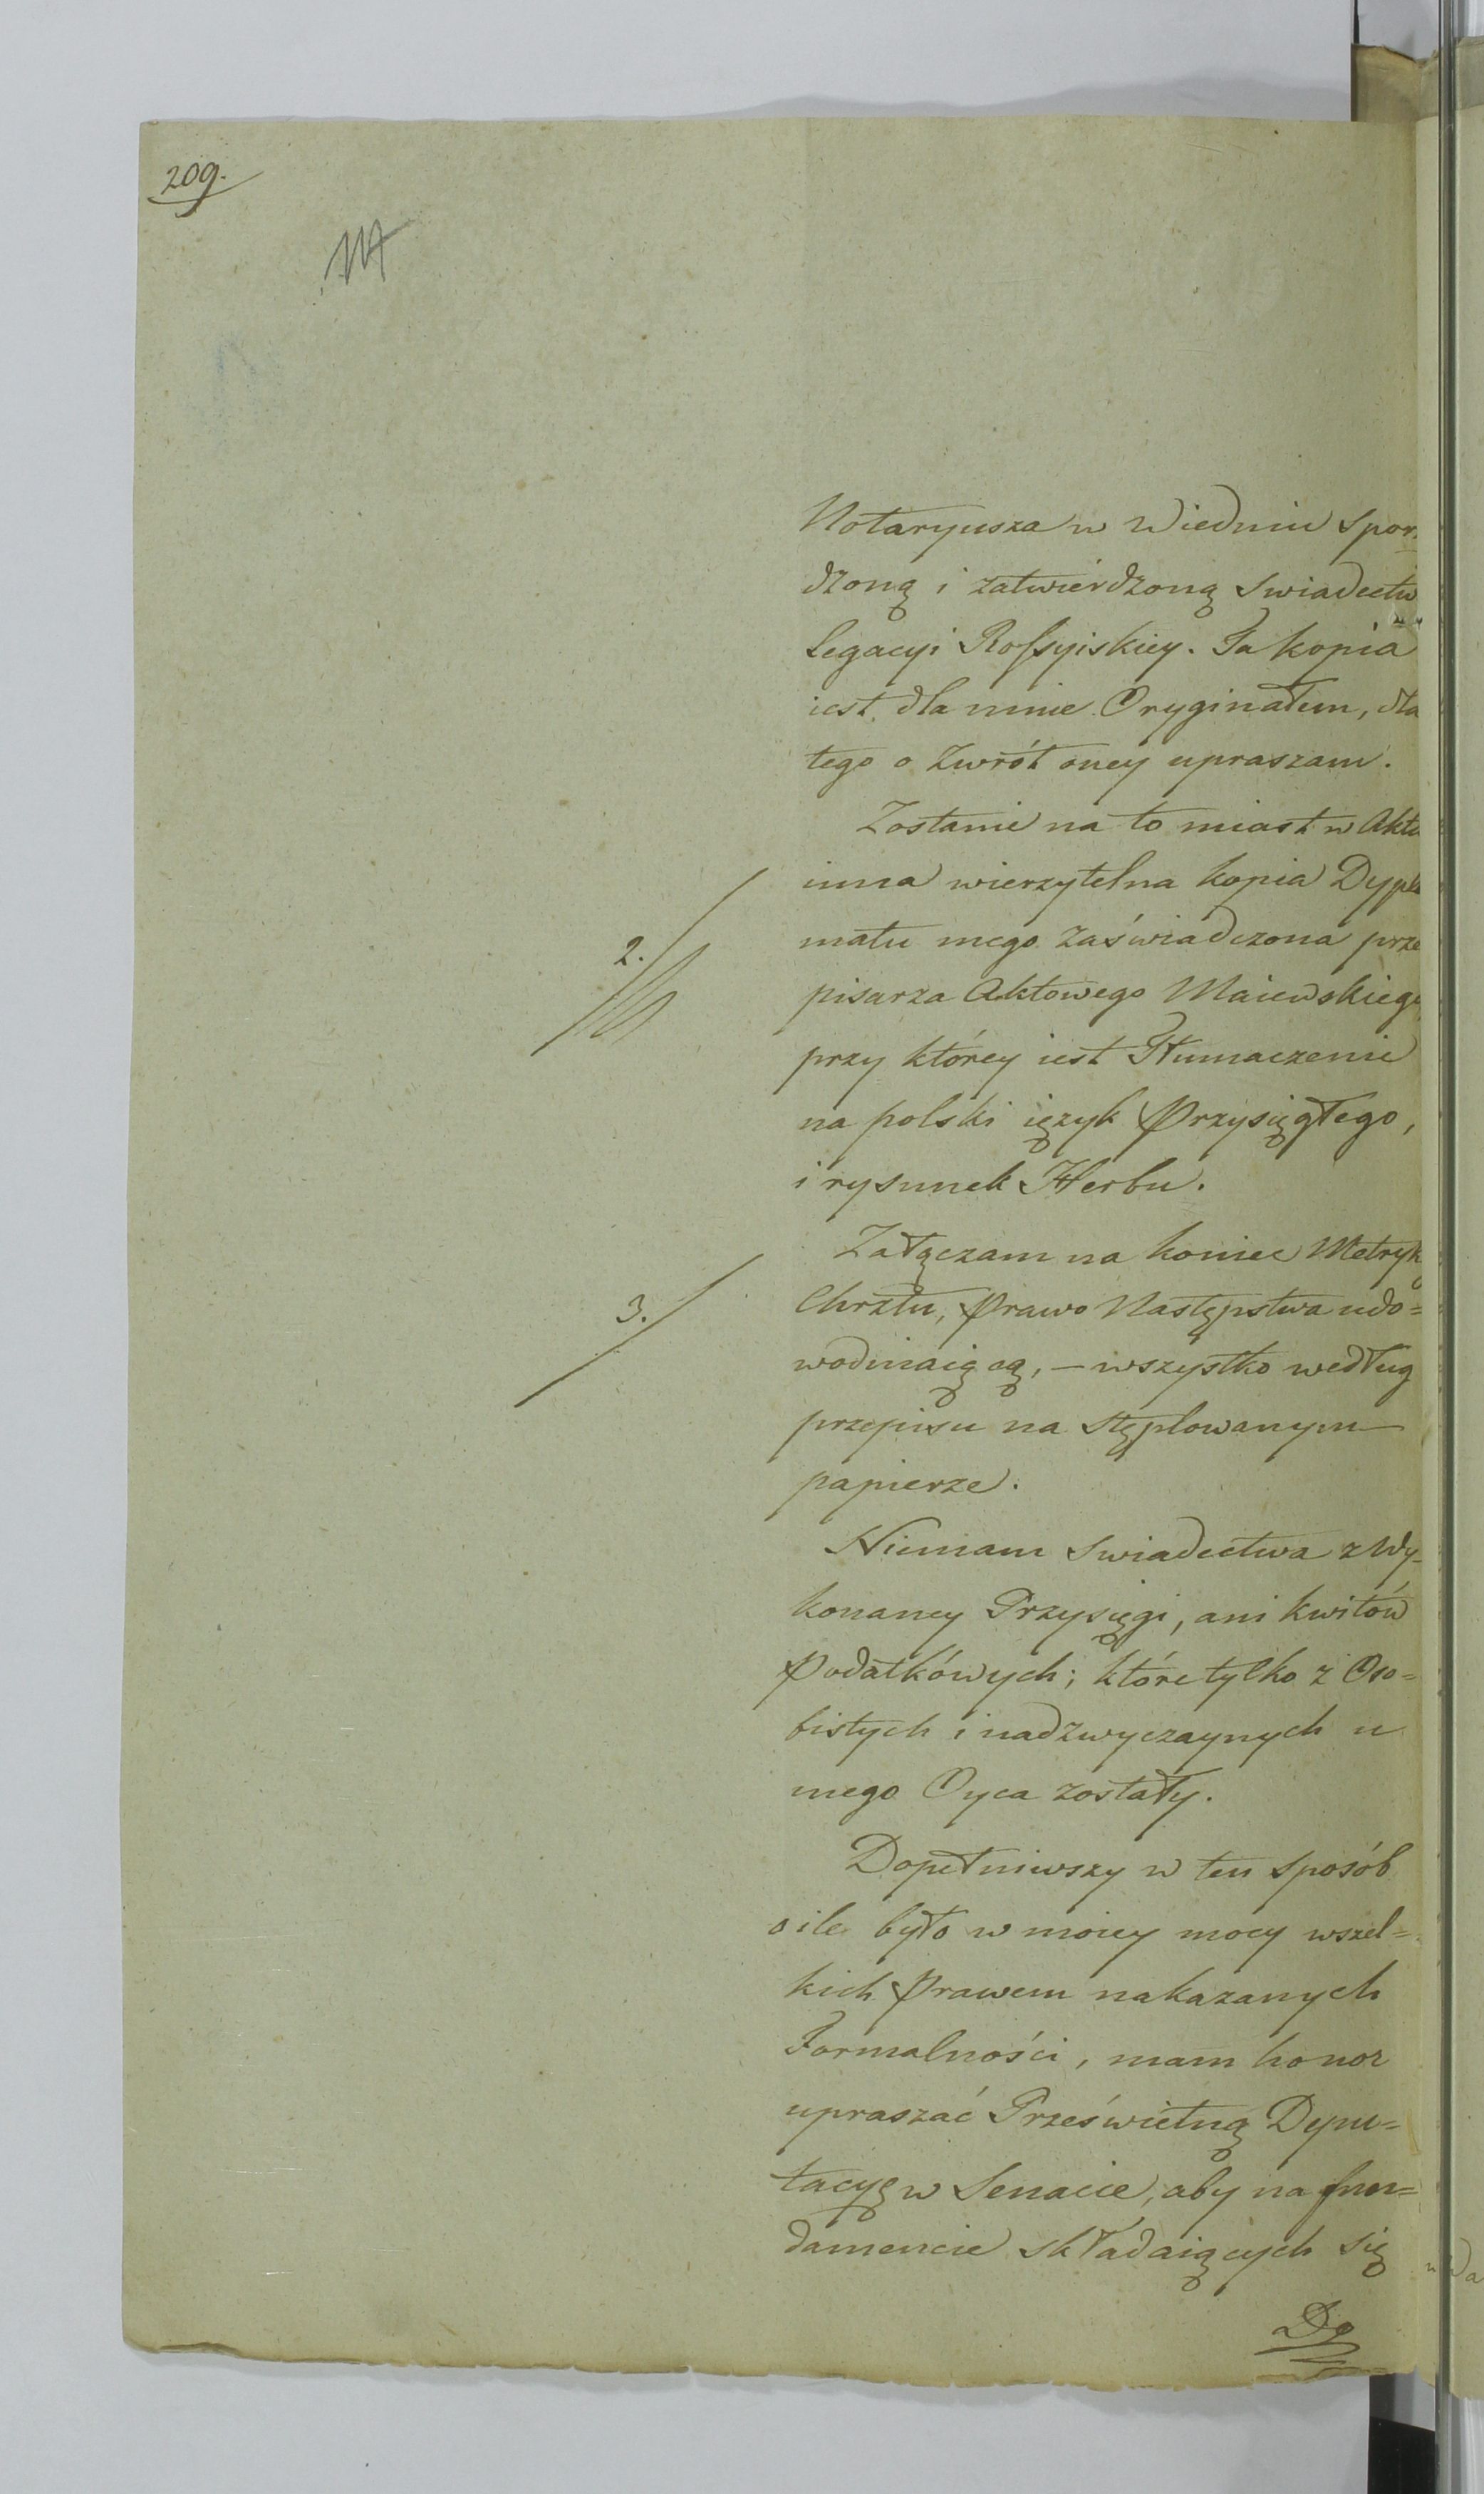 209.
Notaryusza w Wiedniu spor
dzoną i zatwierdzoną swiadectw
legacyi Rossyiskiey. Ta kopia
iest dla mnie Oryginałem, dla
tego o zwrót oney upraszam.
Zostanie na to miast w Akta
2.
inna wierzytelna kopia Dyplo
matu mego zaświadczona prze
pisarza Aktowego Maiewskiego
przy którey iest Tłumaczenie
na polski ięzyk Przysięgłego,
i rysunek Herbu.
3.
Załączam na koniec Metryk
Chrztu, Prawo Następstwa udo=
wodniaiącą, – wszystko według
przepisu na stęplowanym
papierze.
Niemam swiadectwa z Wy-
konaney Przysięgi, ani kwitów
Podatkówych; które tylko z Oso=
bistych i nadzwyczaynych u
mego Oyca zostały.
Dopełniwszy w ten sposób
o ile było w moiey mocy wszel=
kich Prawem nakazanych
Formalności, mam honor
upraszać Prześwietną Depu=
tacyę w Senacie, aby na fun=
damencie składaiących się
Do